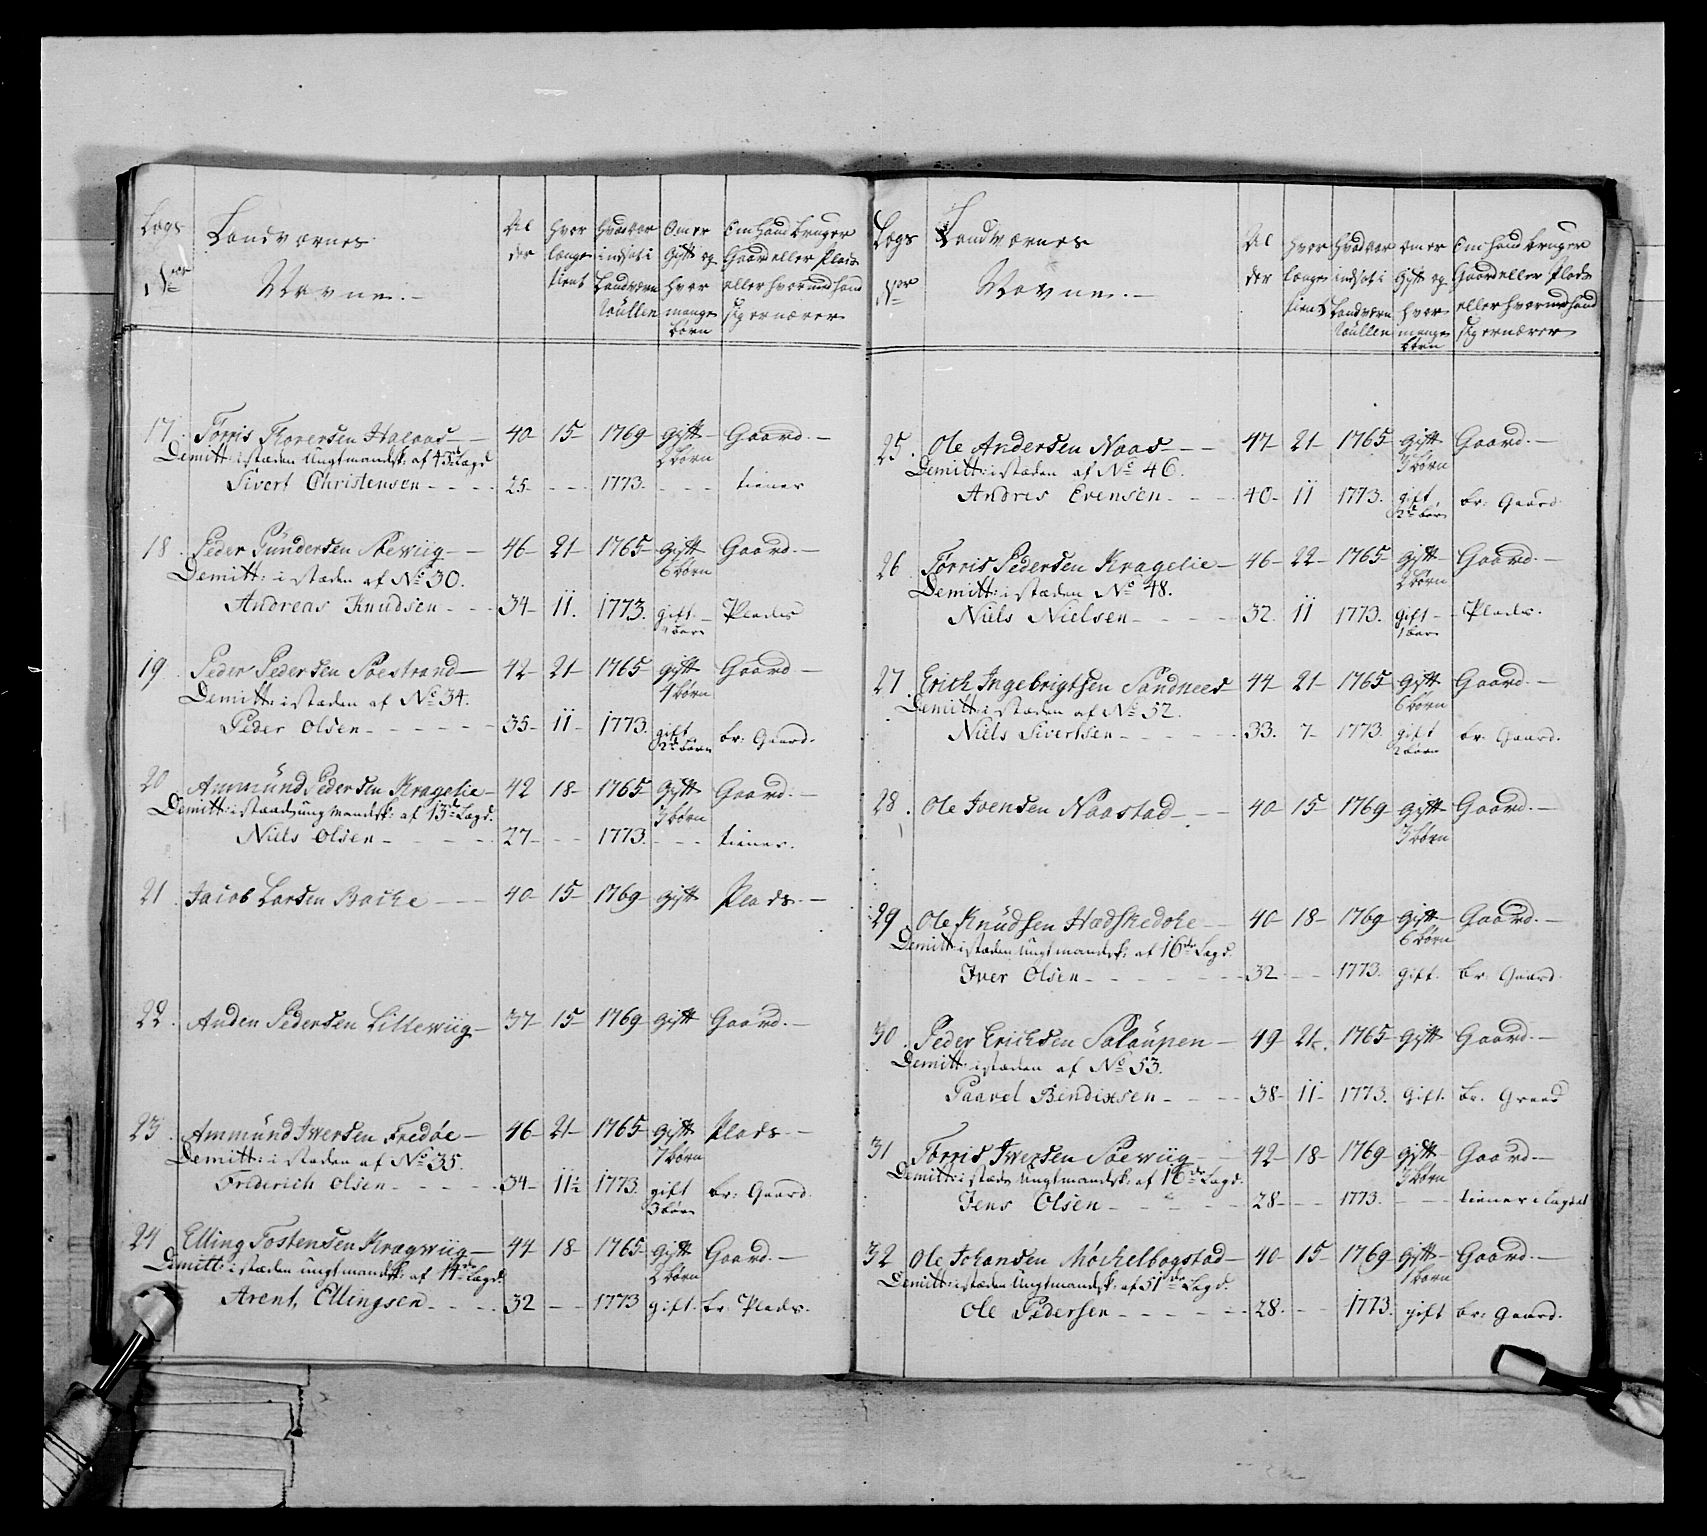 Lægs Nor
Landværnes Navne.
Alder
hvor længe tient
hvad aar indsat i Landværn Roullen
Om er Gift og hvor mange børn
Om hand bruger Gaard eller Plads eller hvormed hand sig ernærer
17. Torris Thorersen 40 15 1769 Gift 2 børn Gaard.
Demitt: i stæden Ungtmandsk: af 43de Lægd
Sivert Christensen 25 1773. tiener
18. Peder Gundersen Soewiig 46 21 1765 Gift 6 børn Gaard.
Demitt: i stæden af No 30.
Andreas Knudsen 34 11. 1773. gift Plads
19. Peder Pedersen Soestrand 42 21 1765 Gift 4 børn Gaard
Demitt: i stæden af No 34.
Peder Olsen 35 11 1773. gift 2de børn br: Gaard.
20. Ammund Pedersen Kragelie 42 18 1765 Gift 3 børn Gaard.
Demitt: i stæed ungmandsk: af 13de Lægd.
Niels Olsen 27 1773. tiener.
21. Jacob Larsen Backe 40 15 1769 Gift Plads.
22. Anden Pedersen Lillewiig 37 15 1769 Gift Gaard.
23. Ammund Iwersen Fredøe 46 21 1765 Gift 7 børn Plads.
Demitt: i stæden af No 35.
Friderich Olsen 34 11½ 1773. gift 3 børn br: Gaard.
24. Elling Tostensen Kragwiig 44 18 1765 Gift 2 børn Gaard.
Demitt: i stæden ungtmandsk: af 14de Lægd.
Arent Ellingsen 32 1773 gift. br: Plads.
Lægs Nor
Landværnes Navne.
Alder
hvor længe tient
hvad aar indsat i Landværn Roullen
om er Gift og hvor mange børn
Om hand bruger Gaard eller Plads eller hvormed hand sig ernærer
25. Ole Andersen Naas 47 21 1765 Gift 3 børn Gaard.
Demitt: i stæden af No 46.
Andres Evensen 40 11 1773. gift 2de børn br: Gaard.
26. Torris Pedersen Kragelie 46 22 1765 Gift 2 børn Gaard.
Demitt: i stæden No 48.
Niels Nielsen 32. 11 1773. gift 1 barn Plads.
27. Erich Ingebrigtsen Sandnees 44 21 1765 Gift 6 børn Gaard.
Demitt: i stæden af No 52.
Niels Sivertsen 33. 7 1773. gift 2 børn br: Gaard.
28. Ole Ivensen Naastad 40 15 1769 Gift 3 børn Gaard.
29. Ole Knudsen Hædskedahe 40 18 1769 Gift 6 børn Gaard.
Demitt: i stæden Ungtmandsk: af 16de Lægd.
Iver Olsen 32 1773. gift. br: Gaard.
30. Peder Erichsen Solaupen 49 21. 1765 Gift Gaard.
Demitt: i stæden af No 53.
Paavel Bendixsen 38 11 1773. Gift. br. Graad
31 Torris Iwersen Soewiig 42 18 1769 Gift 3 børn Gaard.
Demitt: i stæde Ungtmandsk: af 16de Lægd.
Jens Olsen 28 1773. tiener i Lægdet
32. Ole Johansen Møchelbogstad 40 15 1769 Gift 1 børn Gaard.
Demitt: i stæden Ungtmandsk: af 51de Lægd.
Ole Pedersen 28. 1773. gift br: Gaard.